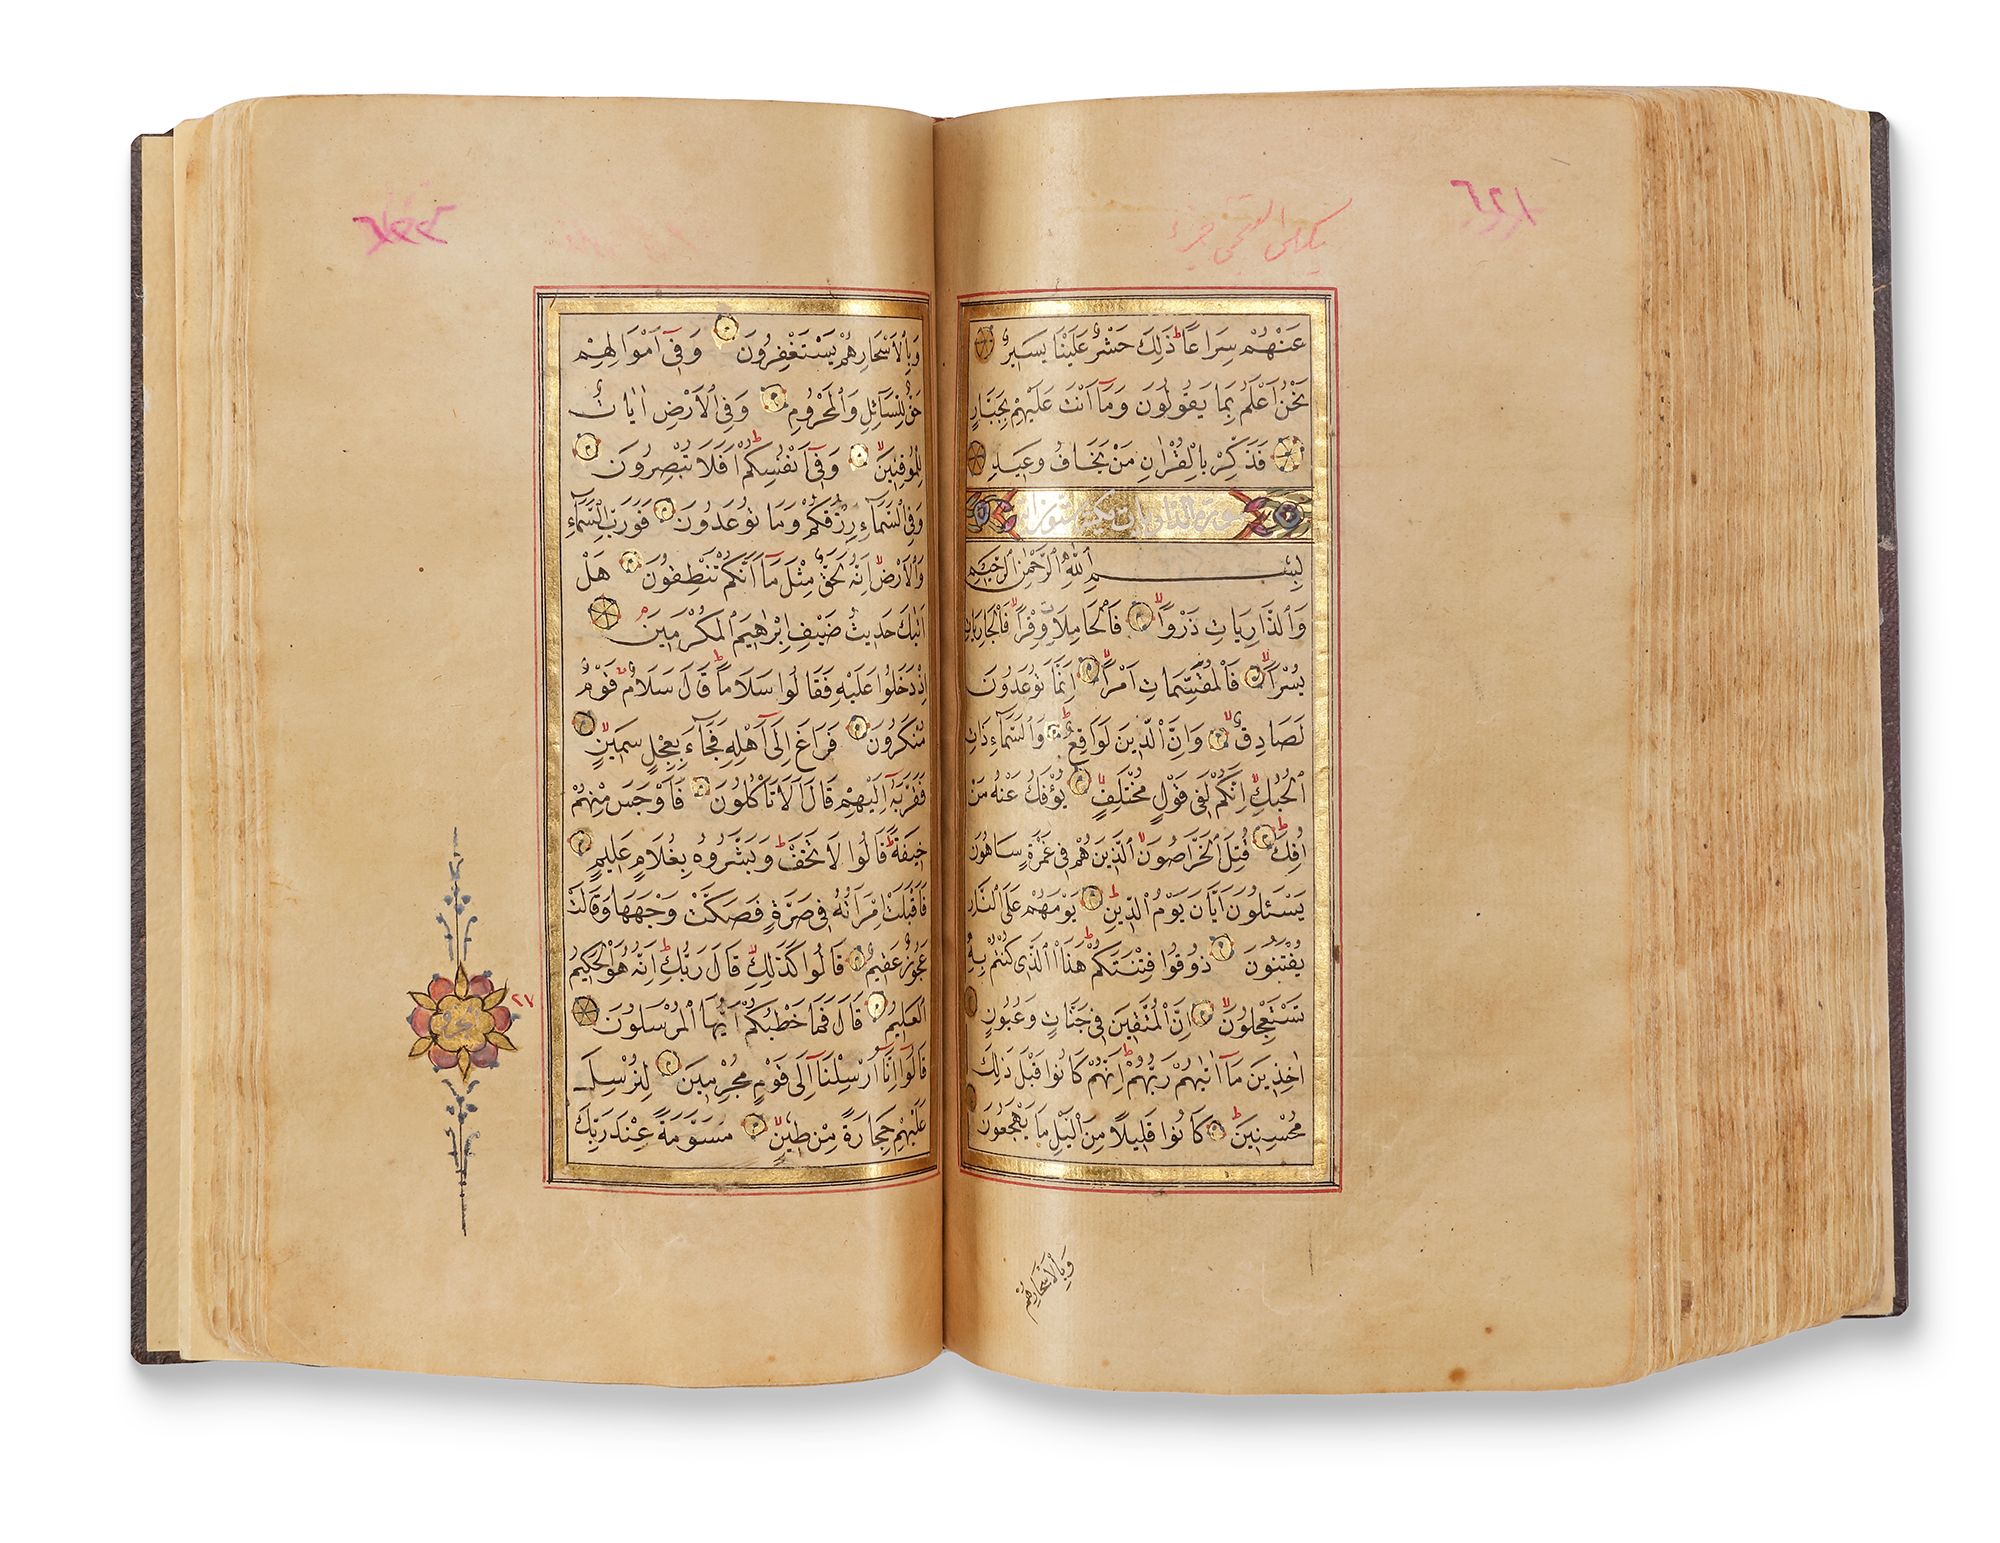 ٦٢١
يكرمى القجى جزء
عَنْهُمْ سِرَاعًا ط ذٰلِكَ حَشْرٌ عَلَيْنَا يَسِيرٌ
نَحْنُ اَعْلَمُ بِمَا يَقُولُونَ وَمَآ اَنْتَ عَلَيْهِمْ بِجَبَّارٍ
فَذَكِّرْ بِالْقُرْاٰنِ مَنْ يَخَافُ وَعِيدِ
سورة الذاريات ستون
بِسْمِ اللّٰهِ الرَّحْمٰنِ الرَّحِيمِ
وَالذَّارِيَاتِ ذَرْوًا لا فَالْحَامِلَاتِ وِقْرًا لا فَالْجَارِيَاتِ
يُسْرًا لا فَالْمُقَسِّمَاتِ اَمْرًا لا اِنَّمَا تُوعَدُونَ
لَصَادِقٌ لا وَاِنَّ الدِّينَ لَوَاقِعٌ ط وَالسَّمَآءِ ذَاتِ
الْحُبُكِ لا اِنَّكُمْ لَفِى قَوْلٍ مُخْتَلِفٍ لا يُؤْفَكُ عَنْهُ مَنْ
اُفِكَ ط قُتِلَ الْخَرَّاصُونَ لا الَّذِينَ هُمْ فِى غَمْرَةٍ سَاهُونَ
يَسْئَلُونَ اَيَّانَ يَوْمُ الدِّينِ ط يَوْمَ هُمْ عَلَى النَّارِ
يُفْتَنُونَ ذُوقُوا فِتْنَتَكُمْ ط هٰذَا الَّذِى كُنْتُمْ بِهِ
تَسْتَعْجِلُونَ اِنَّ الْمُتَّقِينَ فِى جَنَّاتٍ وَعُيُونٍ لا
اٰخِذِينَ مَآ اٰتٰيهُمْ رَبُّهُمْ ط اِنَّهُمْ كَانُوا قَبْلَ ذٰلِكَ
مُحْسِنِينَ ط كَانُوا قَلِيلًا مِنَ الَّيْلِ مَا يَهْجَعُونَ
وَبِالْاَسْحَارِهُمْ
٦٢٢
وَبِالْاَسْحَارِ هُمْ يَسْتَغْفِرُونَ وَفِىٓ اَمْوَالِهِمْ
حَقٌّ لِلسَّآئِلِ وَالْمَحْرُومِ وَفِى الْاَرْضِ اٰيَاتٌ
لِلْمُوقِنِينَ لا وَفِىٓ اَنْفُسِكُمْ ط اَفَلَا تُبْصِرُونَ
وَفِى السَّمَآءِ رِزْقُكُمْ وَمَا تُوعَدُونَ فَوَرَبِّ السَّمَآءِ
وَالْاَرْضِ اِنَّهُ لَحَقٌّ مِثْلَ مَآ اَنَّكُمْ تَنْطِقُونَ هَلْ
اَتٰيكَ حَدِيثُ ضَيْفِ اِبْرٰهِيمَ الْمُكْرَمِينَ م
اِذْ دَخَلُوا عَلَيْهِ فَقَالُوا سَلَامًا ط قَالَ سَلَامٌ قَوْمٌ
مُنْكَرُونَ فَرَاغَ اِلٰٓى اَهْلِهِ فَجَآءَ بِعِجْلٍ سَمِينٍ لا
فَقَرَّبَهُ اِلَيْهِمْ قَالَ اَلَا تَاْكُلُونَ فَاَوْجَسَ مِنْهُمْ
خِيفَةً ط قَالُوا لَا تَخَفْ ط وَبَشَّرُوهُ بِغُلَامٍ عَلِيمٍ
فَاَقْبَلَتِ امْرَاَتُهُ فِى صَرَّةٍ فَصَكَّتْ وَجْهَهَا وَقَالَتْ
عَجُوزٌ عَقِيمٌ قَالُوا كَذٰلِكِ لا قَالَ رَبُّكِ ط اِنَّهُ هُوَ الْحَكِيمُ
الْعَلِيمُ قَالَ فَمَا خَطْبُكُمْ اَيُّهَا الْمُرْسَلُونَ
قَالُوٓا اِنَّآ اُرْسِلْنَآ اِلٰى قَوْمٍ مُجْرِمِينَ لِنُرْسِلَ
عَلَيْهِمْ حِجَارَةً مِنْ طِينٍ لا مُسَوَّمَةً عِنْدَ رَبِّكَ
٢٧